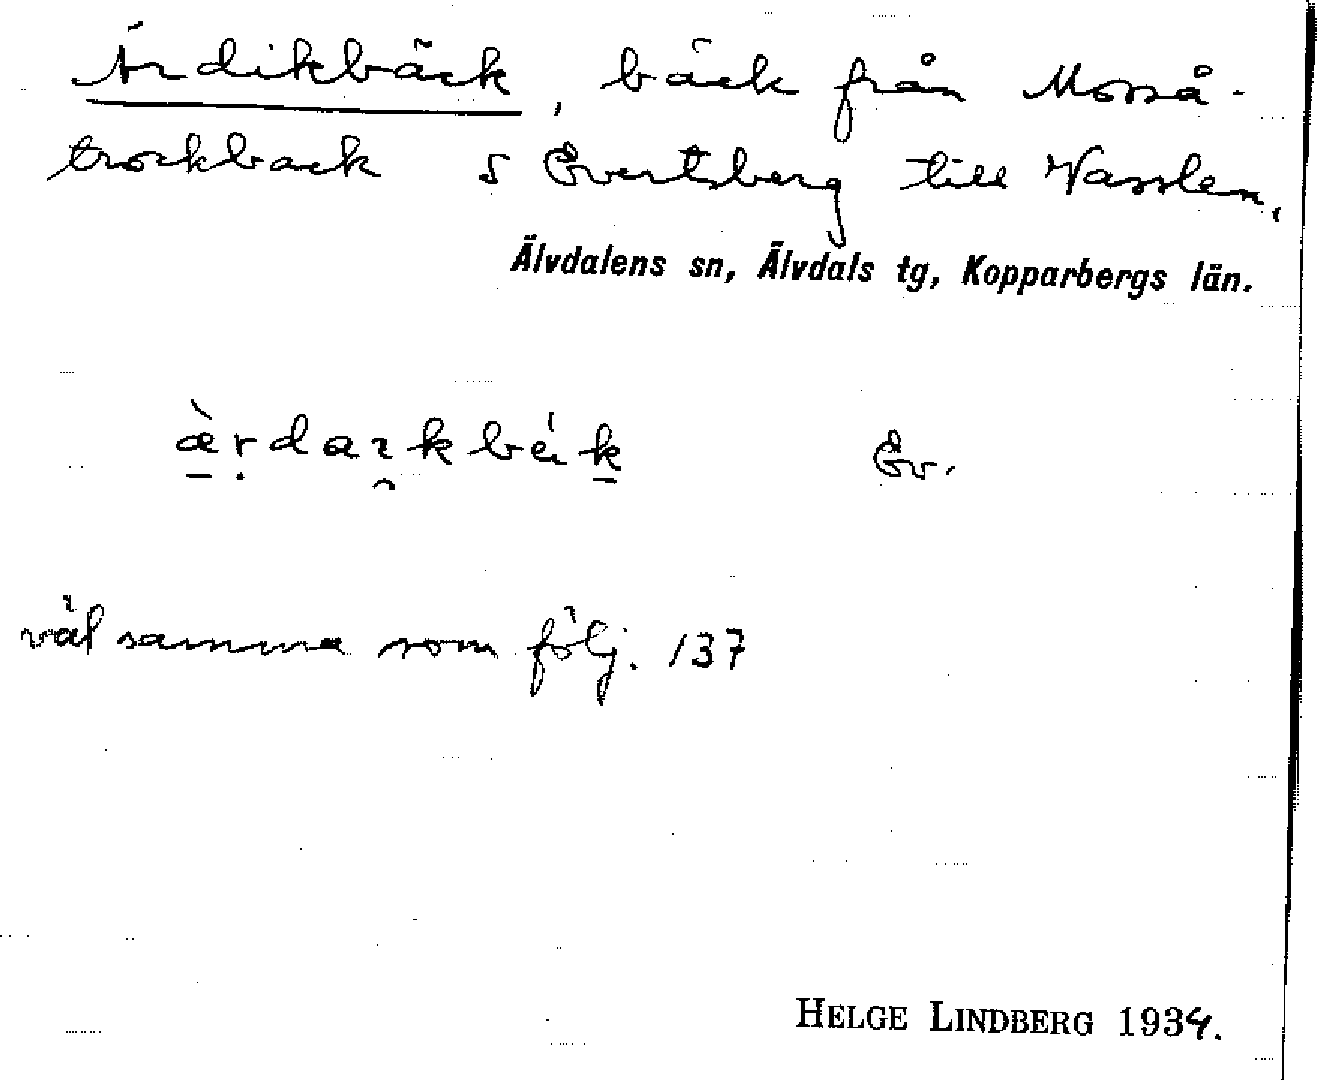 Ärdikbäck, bäck från Morså-
trockback S Evertsberg till Vasslen.
Älvdalens sn, Älvdals tg, Kopparbergs län.
æ̀rdaıkbék Ev.
väl samma som följ. 137
HELGE LINDBERG 1934.